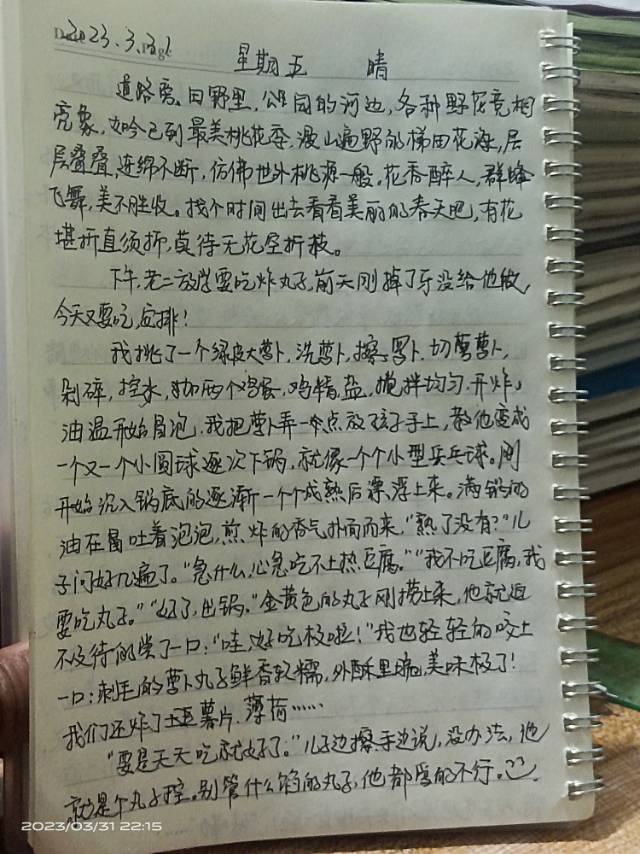 2023.3.31
星期五 晴
道路旁、田野里,公园的河边,各种野花竞相
亮象,如今已到最美桃花季,漫山遍野的梯田花海,层
层叠叠,连绵不断,仿佛世外桃源一般,花香醉人,群蜂
飞舞,美不胜收。找个时间出去看看美丽的春天吧,有花
堪折直须折,莫待无花空折枝。
下午,老二放学要吃炸丸子,前天刚掉了牙没给他做,
今天又要吃,安排!
我挑了一个绿皮大萝卜,洗萝卜,擦萝卜,切萝卜,
剁碎,控水,加两个鸡蛋,鸡精,盐,搅拌均匀.开炸,
油温开始冒泡,我把萝卜弄一点放孩子手上,教他变成
一个又一个小圆球逐次下锅,就像一个个小型乒乓球。刚
开始沉入锅底的逐渐一个个成熟后漂浮上来。满锅的
油在冒吐着泡泡,煎炸的香气扑面而来,"熟了没有?"儿
子问好几遍了。"急什么,心急吃不上热豆腐。""我不吃豆腐,我
要吃丸子。""好了,出锅。"金黄色的丸子刚捞上来,他就迫
不及待的尝了一口:"哇,好吃极啦!"我也轻轻的咬上
一口:刺毛的萝卜丸子鲜香软糯,外酥里嫩,美味极了!
我们还炸了薯片、薄荷……
"要是天天吃就好了。"儿子边擦手边说,没办法,他
就是个丸子控。别管什么馅的丸子,他都爱的不行。
2023/03/31 22:15